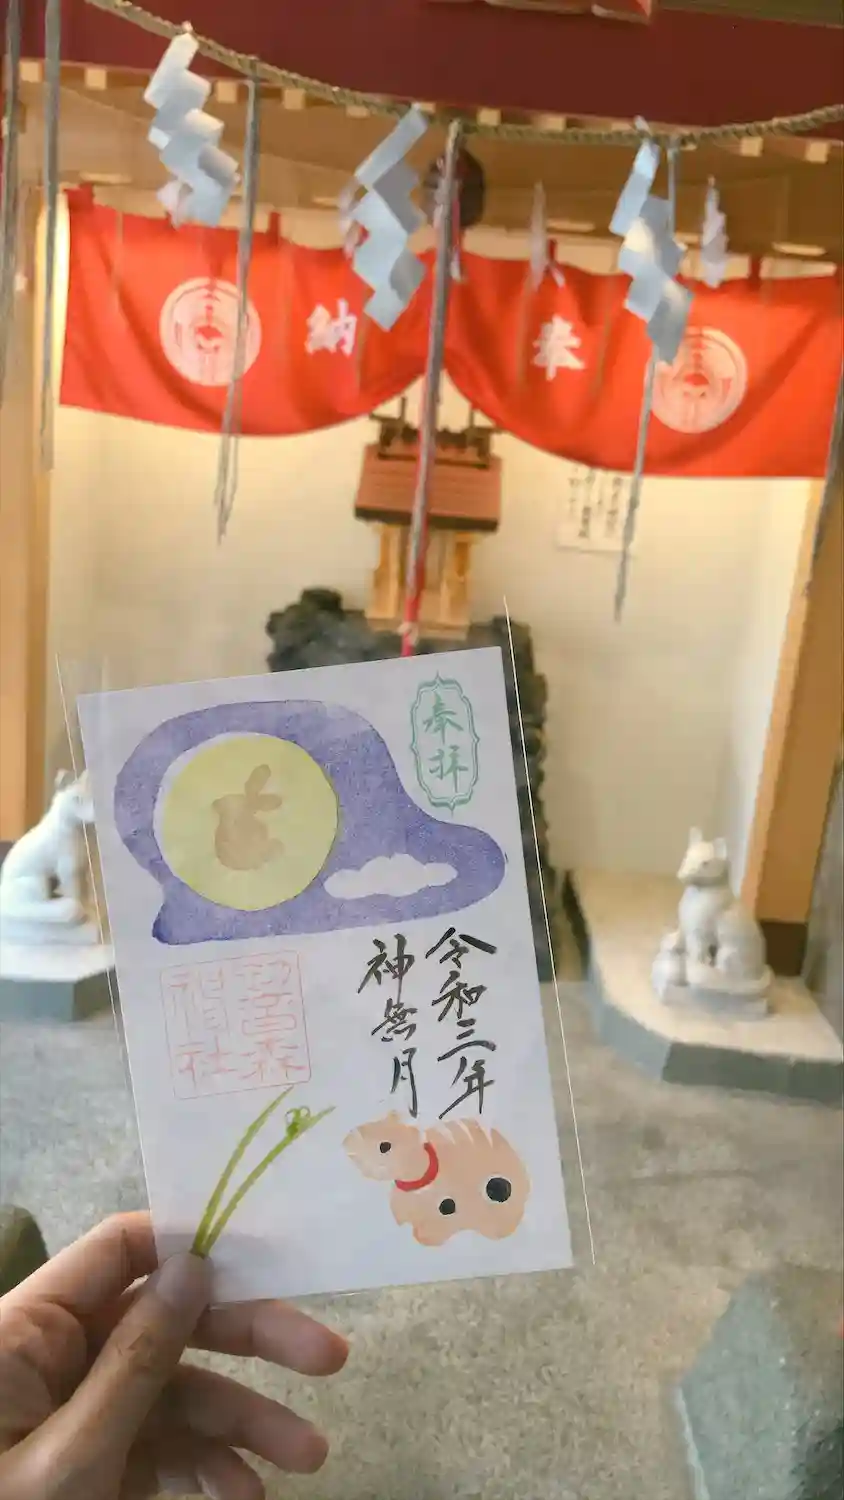 奉納
奉拝
令和三年
神無月
初音森
神社